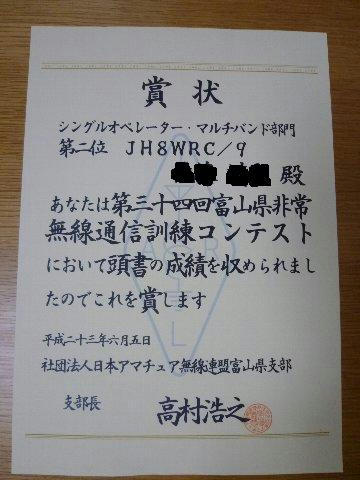 賞状
シングルオペレーター・マルチバンド部門
第二位 JH8WRC/9
殿
あなたは第三十四回富山県非常
無線通信訓練コンテスト
において頭書の成績を収められまし
たのでこれを賞します
平成二十三年六月五日
社団法人日本アマチュア無線連盟富山県支部
支部長 高村浩之